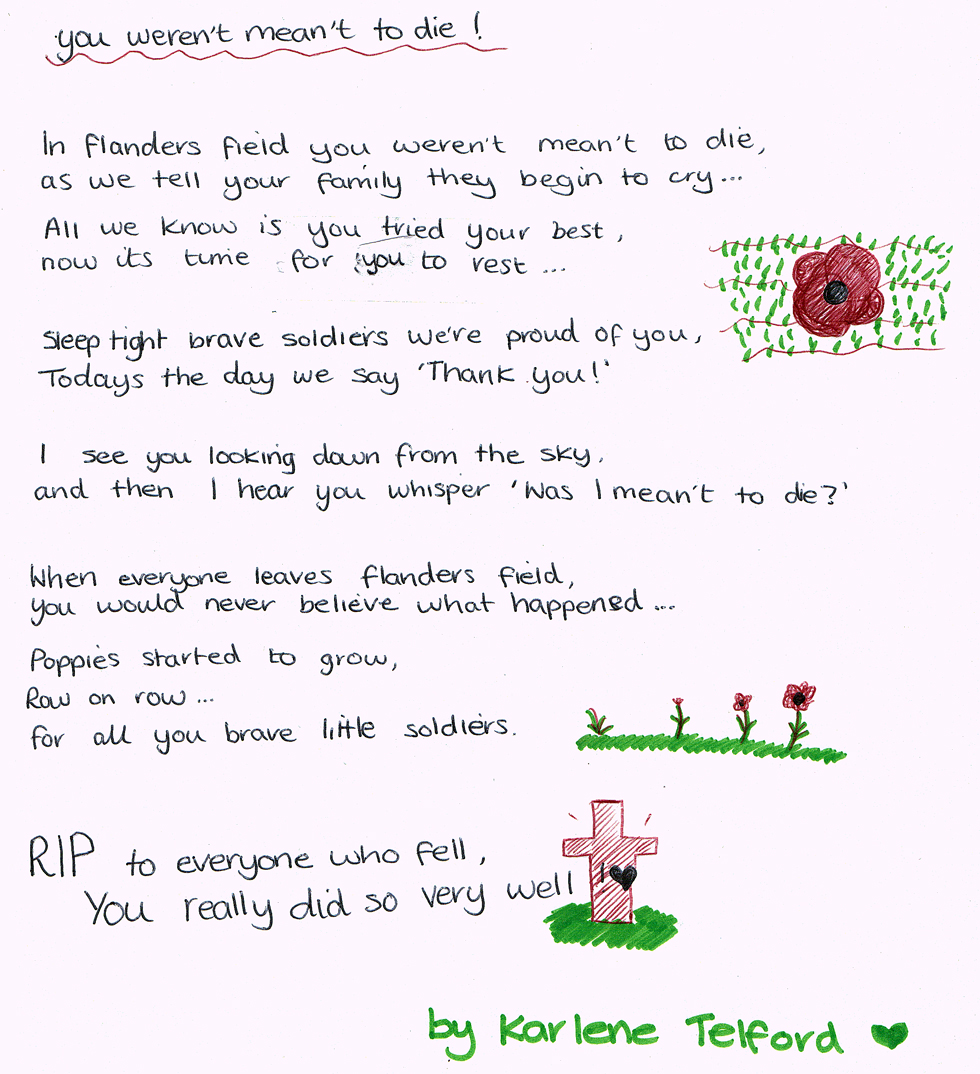 you weren't mean't to die!
In flanders field you weren't mean't to die,
as we tell your family they begin to cry...
All we know is you tried your best,
now its time for you to rest...
Sleep tight brave soldiers we're proud of you,
Todays the day we say 'Thank you!'
I see you looking down from the sky,
and then I hear you whisper 'Was I mean't to die?'
When everyone leaves flanders field,
you would never believe what happened...
Poppies started to grow,
Row on row...
for all you brave little soldiers.
RIP to everyone who fell,
You really did so very well!
by Karlene Telford